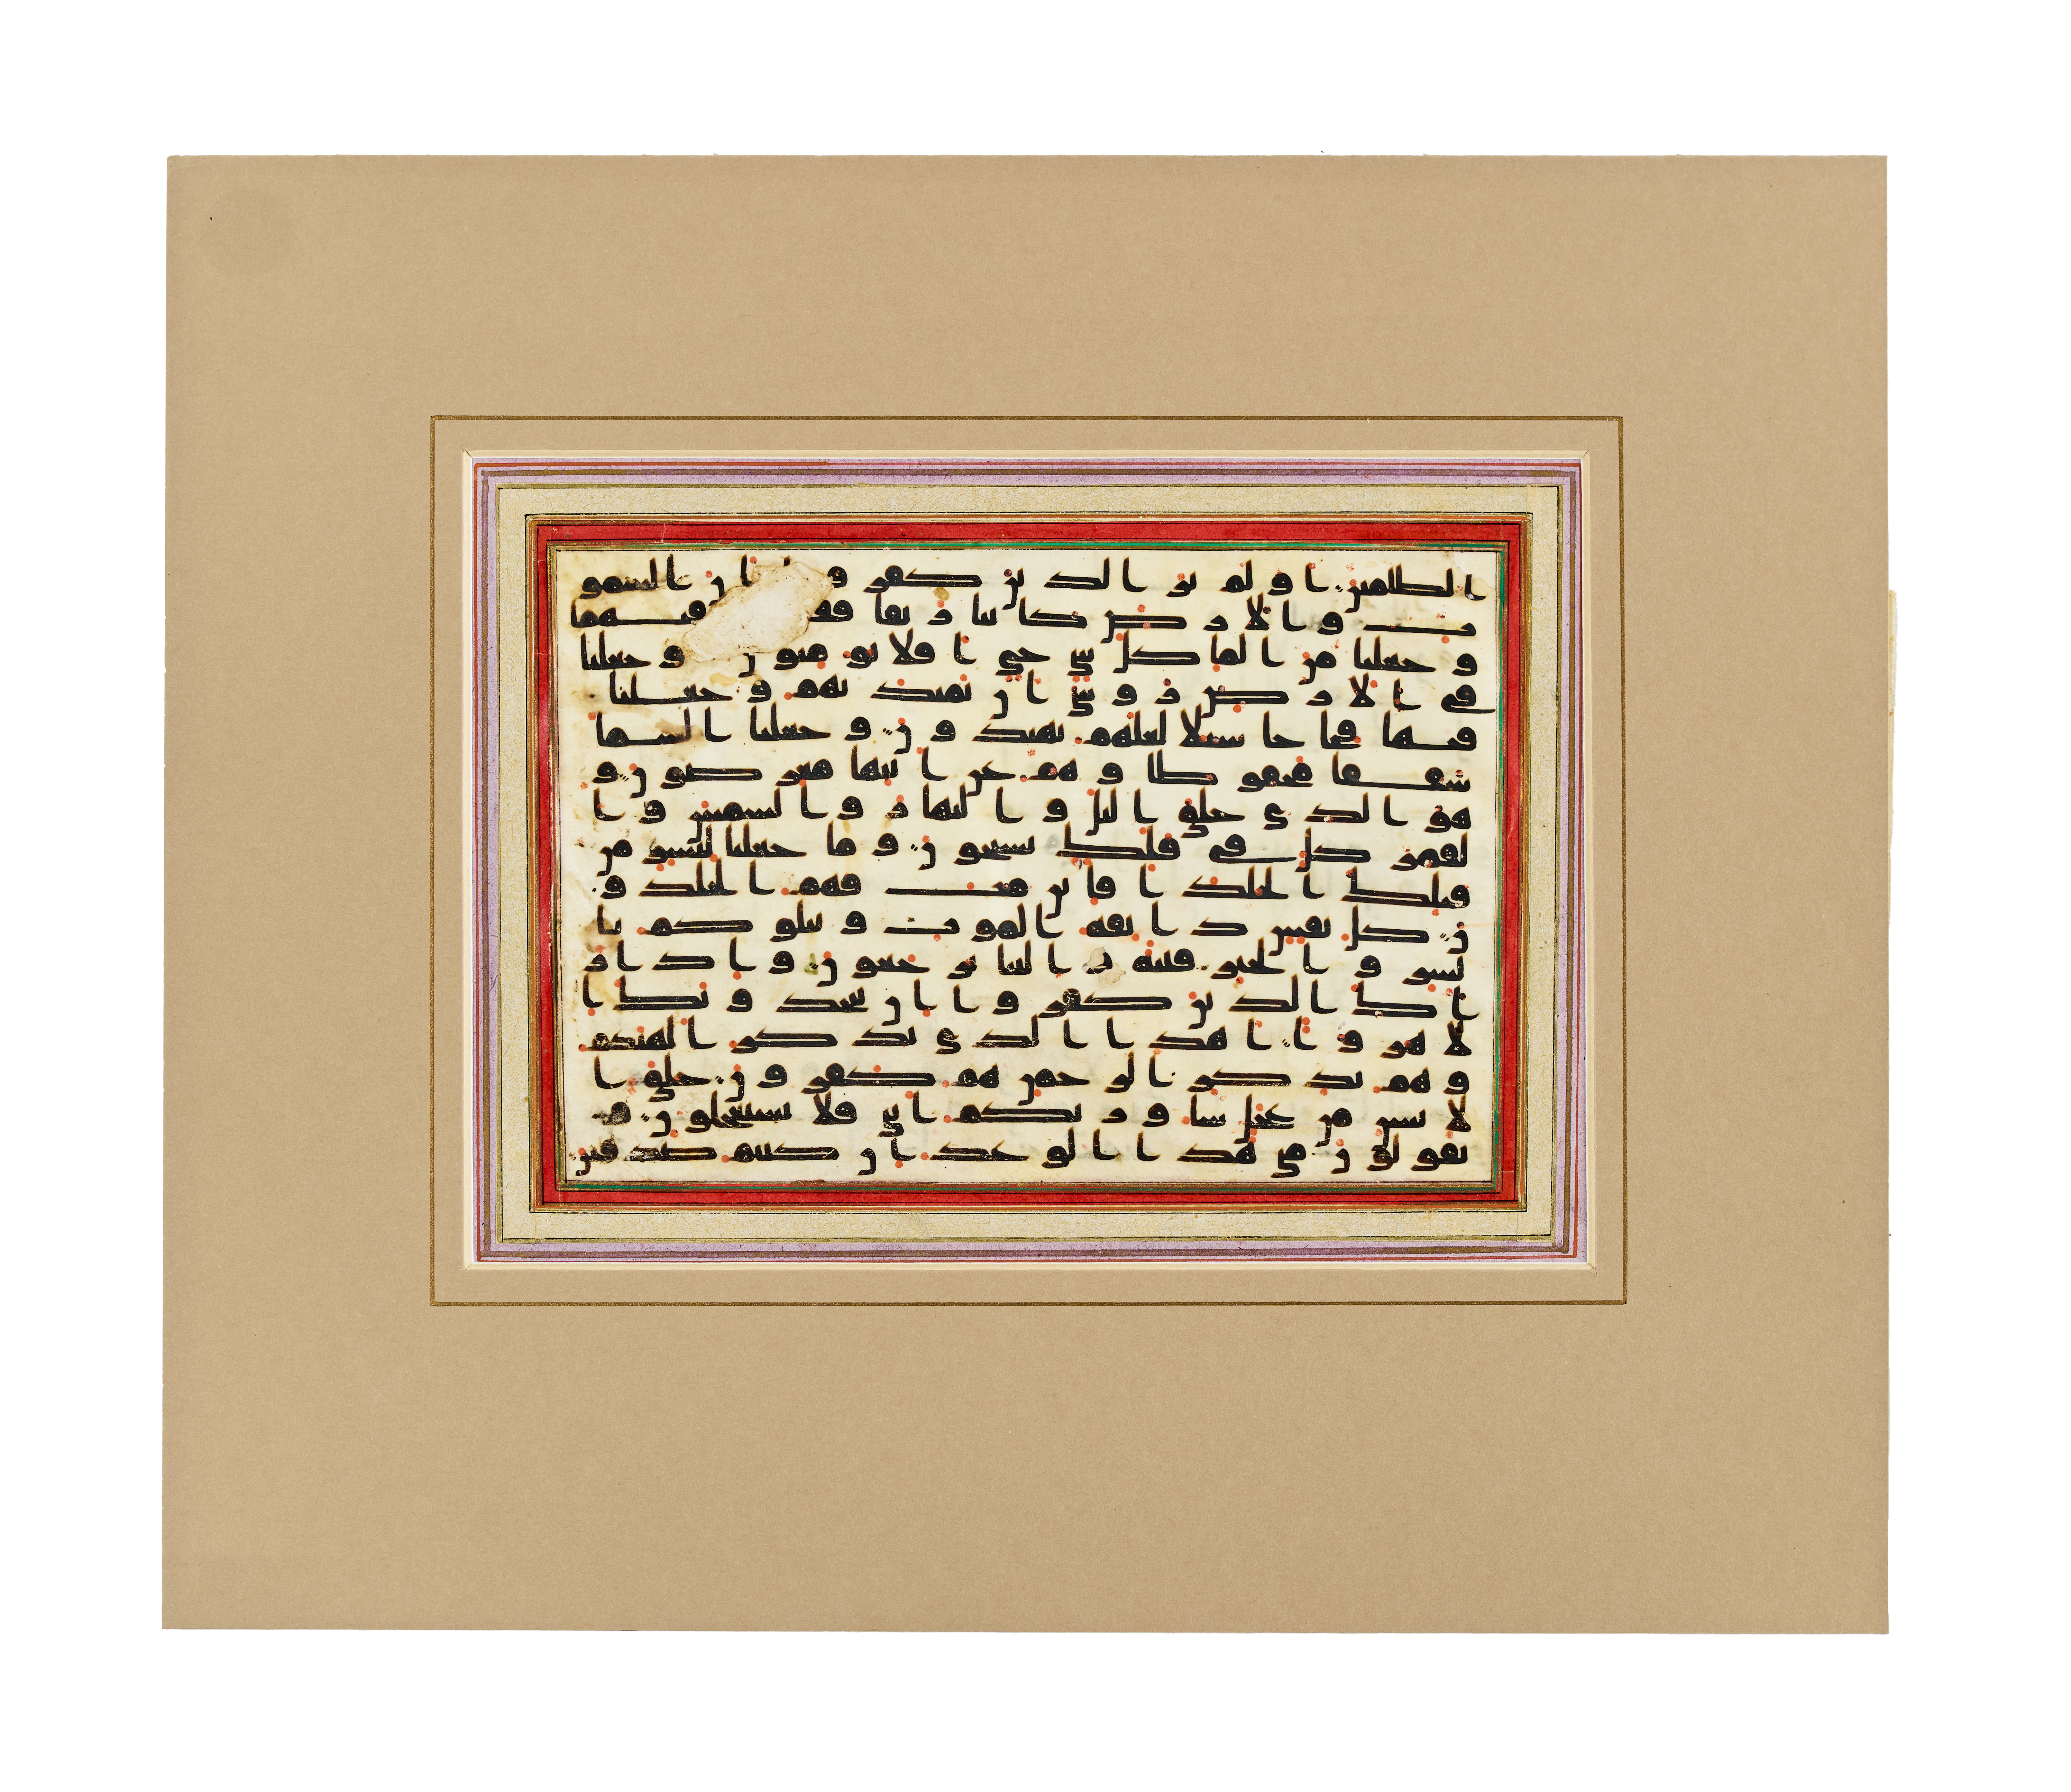 الظلمين اولم ير الذين كفروا ان السمو
ت والارض كانتا رتقا ففتقنهما
وجعلنا من الما كل شي حي افلا يومنون وجعلنا
في الارض روسي ان تميد بهم وجعلنا
فيها فجاجا سبلا لعلهم يهتدون وجعلنا السما
سقفا محفوظا وهم عن ايتها معرضون و
هو الذي خلق اليل والنهار والشمس وا
لقمر كل في فلك يسبحون وما جعلنا لبشر من
قبلك الخلد افاين مت فهم الخلدو
ن كل نفس ذايقة الموت ونبلوكم با
لشر والخير فتنة والينا ترجعون واذا را
ك الذين كفروا ان يتخذونك ا
لا هزوا اهذا الذي يذكر الهتكم
وهم بذكر الرحمن هم كفرون خلق ا
لانسن من عجل ساوريكم ايتي فلا تستعجلون و
يقولون متى هذا الوعد ان كنتم صدقين